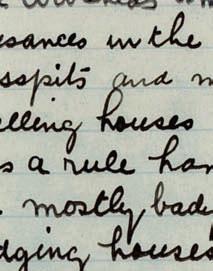 esances in the
sspits and m
elling houses
s a rule han
mostly bady
dging houses